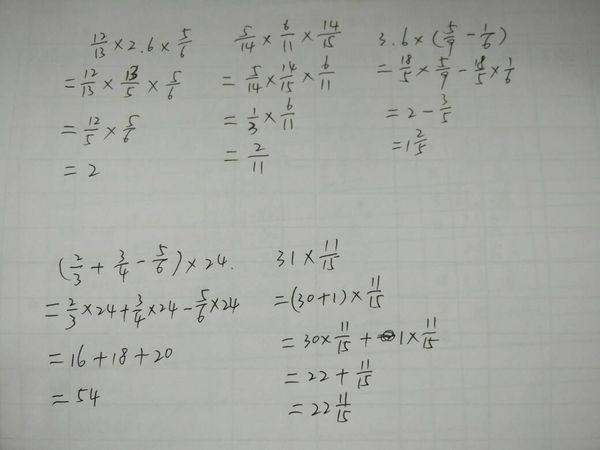 12/13 × 2.6 × 5/6
= 12/13 × 13/5 × 5/6
= 12/5 × 5/6
= 2
5/14 × 6/11 × 14/15
= 5/14 × 14/15 × 6/11
= 1/3 × 6/11
= 2/11
3.6 × (5/9 - 1/6)
= 18/5 × 5/9 - 18/5 × 1/6
= 2 - 3/5
= 1 2/5
(2/3 + 3/4 - 5/6) × 24.
= 2/3 × 24 + 3/4 × 24 - 5/6 × 24
= 16 + 18 + 20
= 54
31 × 11/15
= (30+1) × 11/15
= 30 × 11/15 + 1 × 11/15
= 22 + 11/15
= 22 11/15